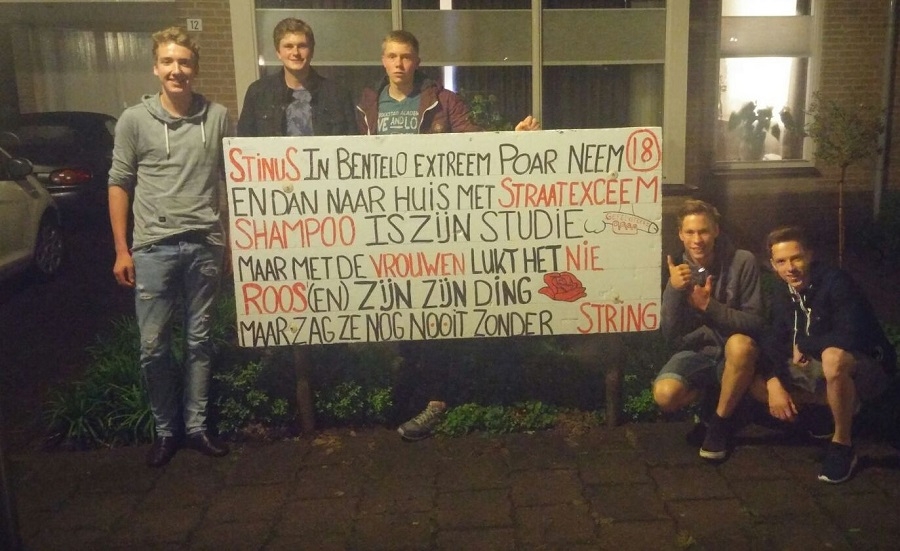 12
STINUS IN BENTELO EXTREEM POAR NEEM 18
EN DAN NAAR HUIS MET STRAATEXCEEM
SHAMPOO IS ZIJN STUDIE
MAAR MET DE VROUWEN LUKT HET NIE
ROOS'(EN) ZIJN ZIJN DING
MAAR ZAG ZE NOG NOOIT ZONDER STRING
VE AND LO